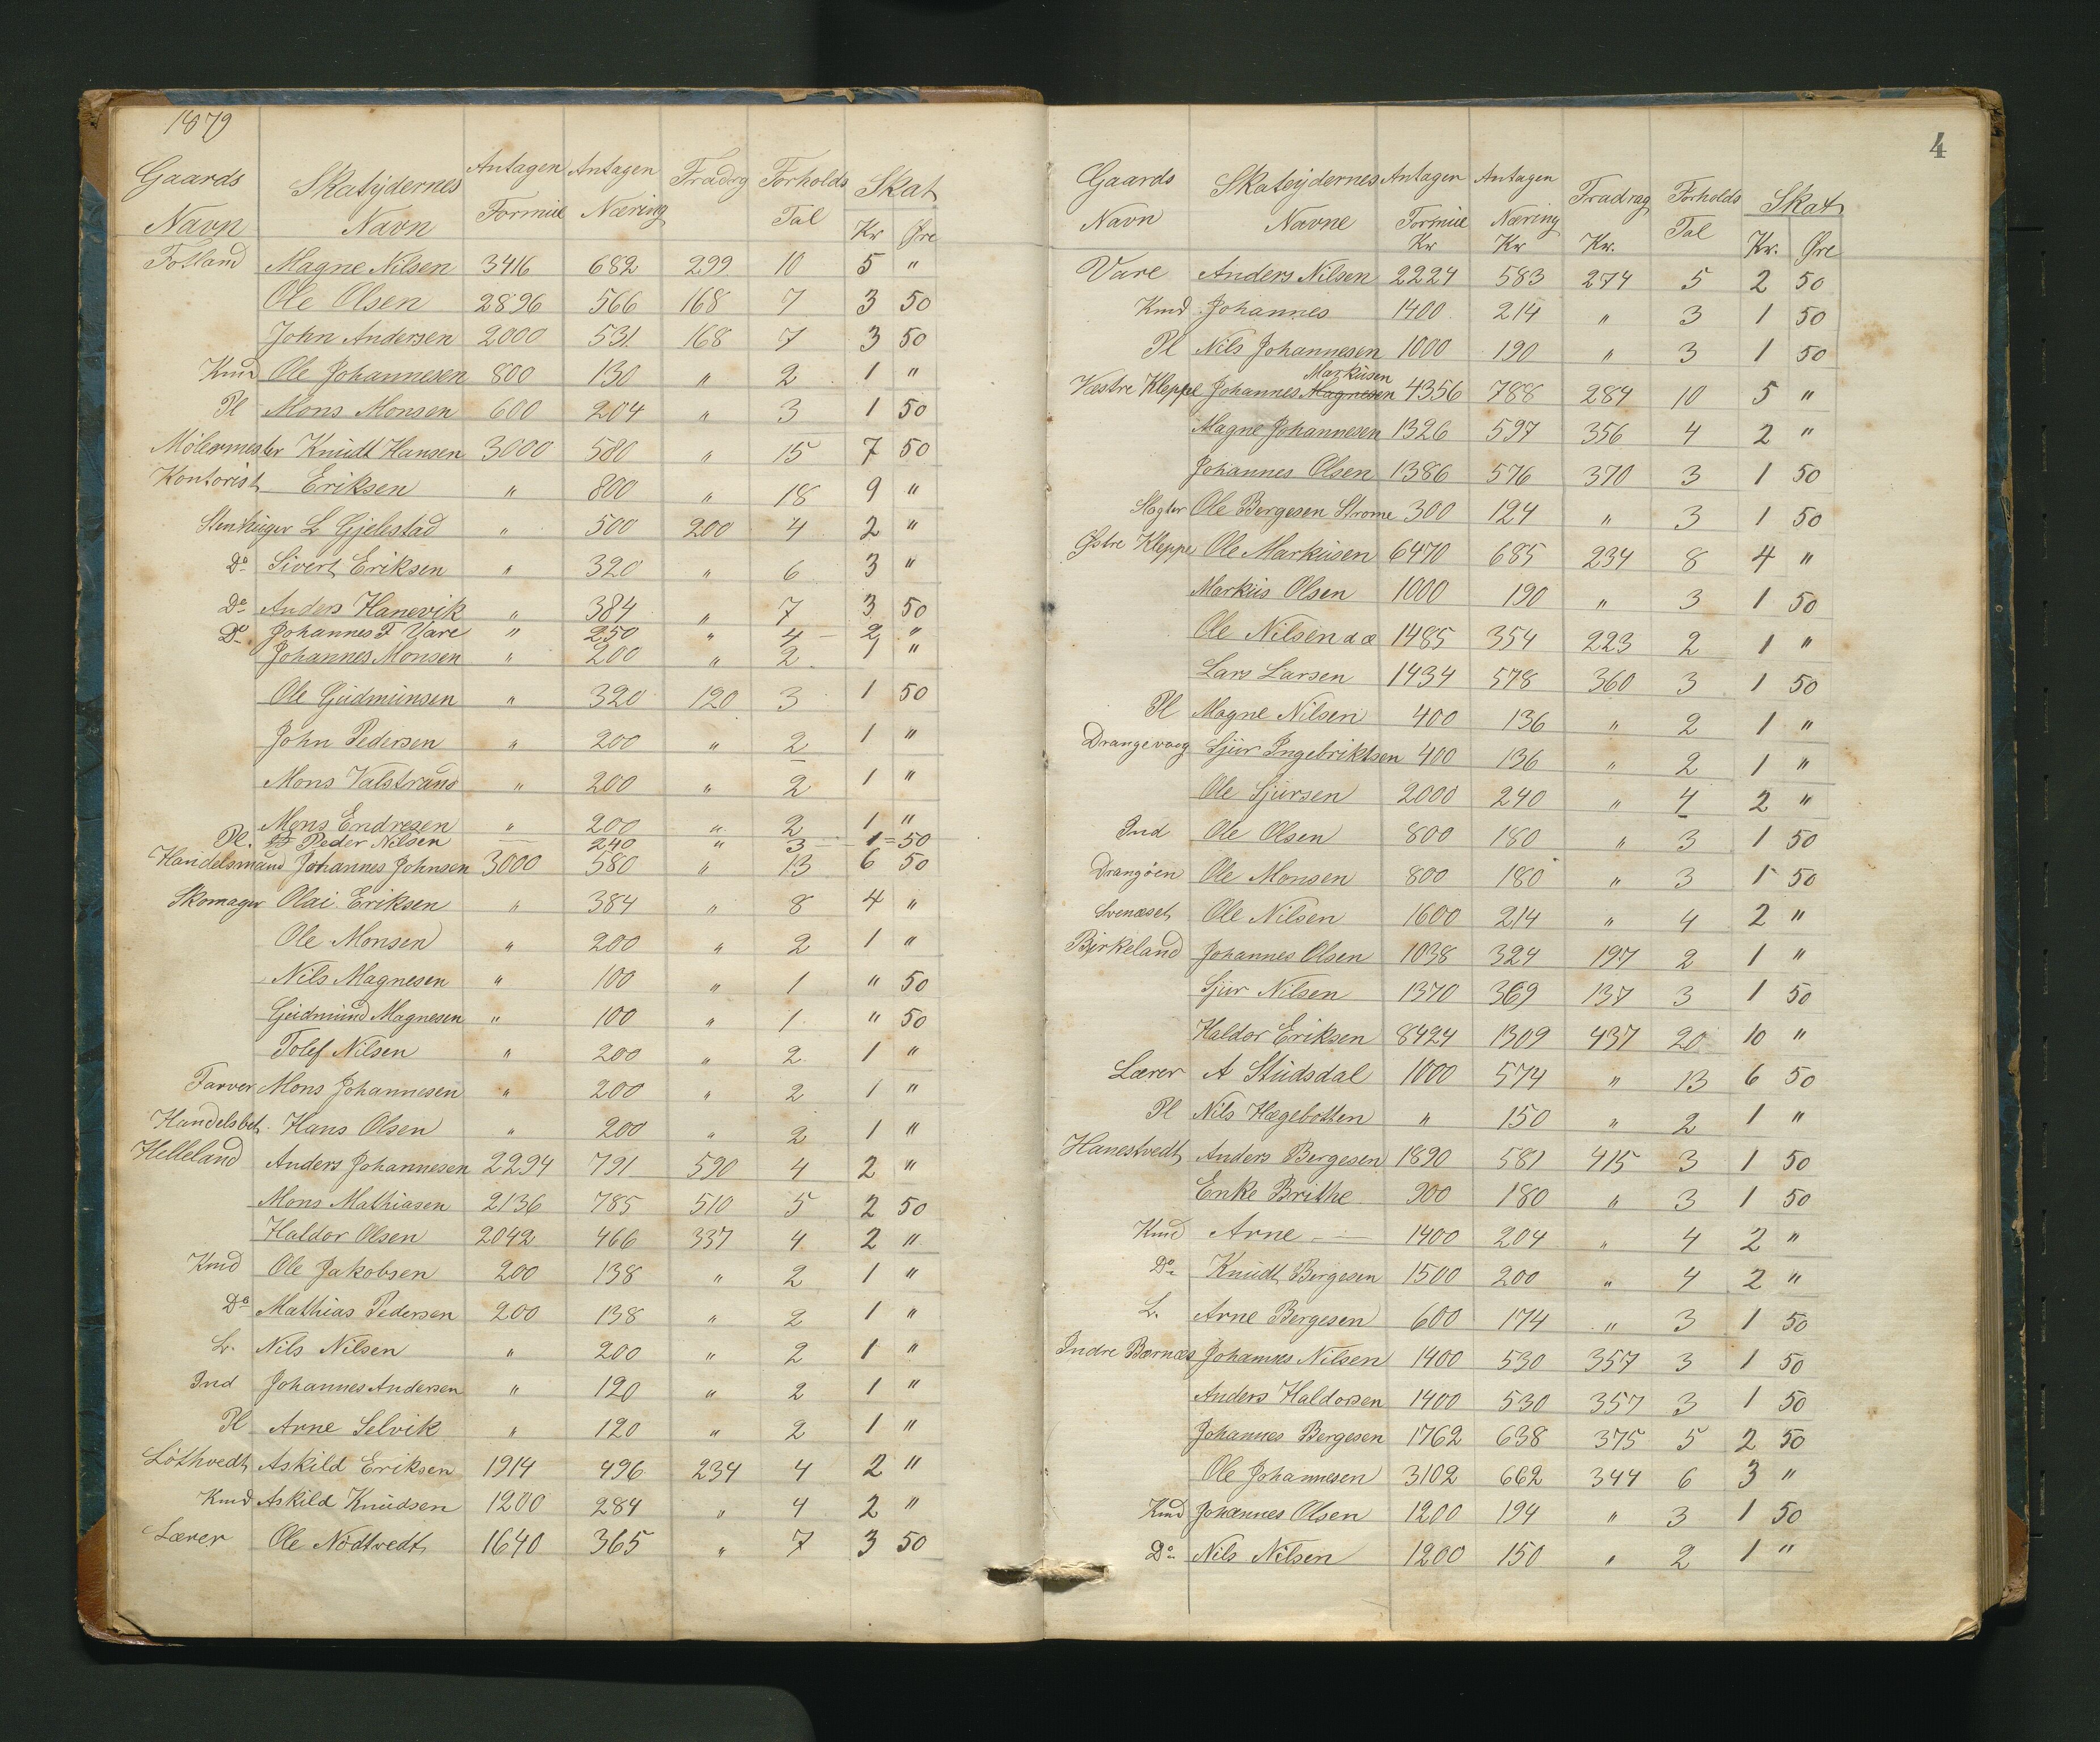 1879
Gaards Navn Skatydernes Navn Antagen Formue Antagen Næring Fradrg Forholds Tal Skat Kr Øre
Fotland Magne Nilsen 3416 682 299 10 5 "
Ole Olsen 2896 566 168 7 3 50
John Andersen 2000 531 168 7 3 50
Kmd Ole Johannesen 800 130 " 2 1 "
Pl Mons Monsen 600 204 " 3 1 50
Mölermester Knudt Hansen 3000 580 " 15 7 50
Kontorist Eriksen " 800 " 18 9 "
Stenhuger L Gjelestad " 500 200 4 2 "
Do Sivert Eriksen " 320 " 6 3 "
Do Anders Hanevik " 384 " 7 3 50
Do Johannes F Vare " 250 " 4 – 2 "
Johannes Monsen " 200 " 2 1 "
Ole Gudmunsen " 320 120 3 1 50
John Pedersen " 200 " 2 1 "
Mons Valstrand " 200 " 2 1 "
Mons Endresen " 200 " 2 1 "
Pl. Peder Nilsen — 240 " 3 – 1 = 50
Handelsmand Johannes Johnsen 3000 580 " 13 6 50
Skomager Olai Eriksen " 384 " 8 4 "
Ole Monsen " 200 " 2 1 "
Nils Magnesen " 100 " 1 " 50
Gudmund Magnesen " 100 " 1 " 50
Tolef Nilsen " 200 " 2 1 "
Farver Mons Johannesen " 200 " 2 1 "
Handelsbet. Hans Olsen " 200 " 2 1 "
Helleland Anders Johannesen 2294 791 590 4 2 "
Mons Mathiasen 2136 785 510 5 2 50
Haldor Olsen 2042 466 337 4 2 "
Kmd Ole Jakobsen 200 138 " 2 1 "
Do Mathias Pedersen 200 138 " 2 1 "
L. Nils Nilsen " 200 " 2 1 "
Ind Johannes Andersen " 120 " 2 1 "
Pl Arne Selvik " 120 " 2 1 "
Löthvedt Askild Eriksen 1914 496 234 4 2 "
Kmd Askild Knudsen 1200 284 " 4 2 "
Lærer Ole Nödtvedt 1640 365 " 7 3 50
4
Gaards Navn Skateydernes Navne Antagen Formue Kr Antagen Næring Kr Fradrag Kr. Forholds Tal Skat Kr. Øre
Vare Anders Nilsen 2224 583 274 5 2 50
Kmd Johannes 1400 214 " 3 1 50
Pl Nils Johannesen 1000 190 " 3 1 50
Markusen
Vestre Kleppe Johannes Magnesen 4356 788 284 10 5 "
Magne Johannesen 1326 597 356 4 2 "
Johannes Olsen 1386 576 370 3 1 50
Slagter Ole Bergesen Strome 300 124 " 3 1 50
Østre Kleppe Ole Markusen 6470 685 234 8 4 "
Markus Olsen 1000 190 " 3 1 50
Ole Nilsen d æ 1485 354 223 2 1 "
Lars Larsen 1434 578 360 3 1 50
Pl Magne Nilsen 400 136 " 2 1 "
Drangevaag Sjur Ingebriktsen 400 136 " 2 1 "
Ole Sjursen 2000 240 " 4 2 "
Ind Ole Olsen 800 180 " 3 1 50
Drangöen Ole Monsen 800 180 " 3 1 50
Svenæset Ole Nilsen 1600 214 " 4 2 "
Bjrkeland Johannes Olsen 1038 324 197 2 1 "
Sjur Nilsen 1370 369 137 3 1 50
Haldor Eriksen 8424 1309 437 20 10 "
Lærer A Studsdal 1000 574 " 13 6 50
Pl Nils Hægebotten " 150 " 2 1 "
Hanestvedt Anders Bergesen 1890 581 415 3 1 50
Enke Brithe 900 180 " 3 1 50
Kmd Arne — 1400 204 " 4 2 "
Do Knudt Bergesen 1500 200 " 4 2 "
L. Arne Bergesen 600 174 " 3 1 50
Indre Barnæs Johannes Nilsen 1400 530 357 3 1 50
Anders Haldorsen 1400 530 357 3 1 50
Johannes Bergesen 1762 638 375 5 2 50
Ole Johannesen 3102 662 344 6 3 "
Kmd Johannes Olsen 1200 194 " 3 1 50
Do Nils Nilsen 1200 150 " 2 1 "